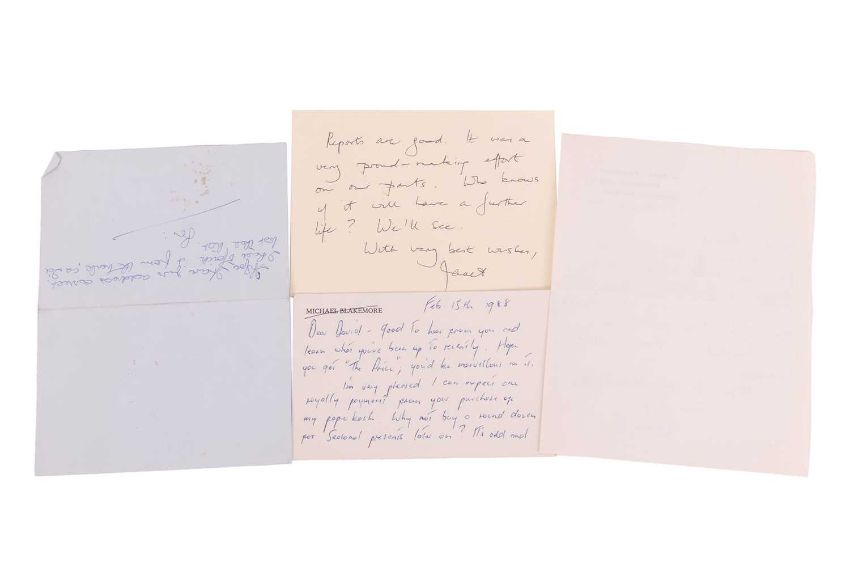 Reports are good. It was a
very proud-making effort
on our parts. Who knows
if it will have a further
life? We'll see.
With very best wishes,
Janet
MICHAEL BLAKEMORE
Feb. 15th 1988
Dear David - good to hear from you and
learn what you've been up to recently. Hope
you get "The Price"; you'd be marvellous in it.
I'm very pleased I can expect one
royalty payment from your purchase of
my paperback. Why not buy a round dozen
for Seasonal presents later on? It's odd and
I hope I have your address correct
I had it from